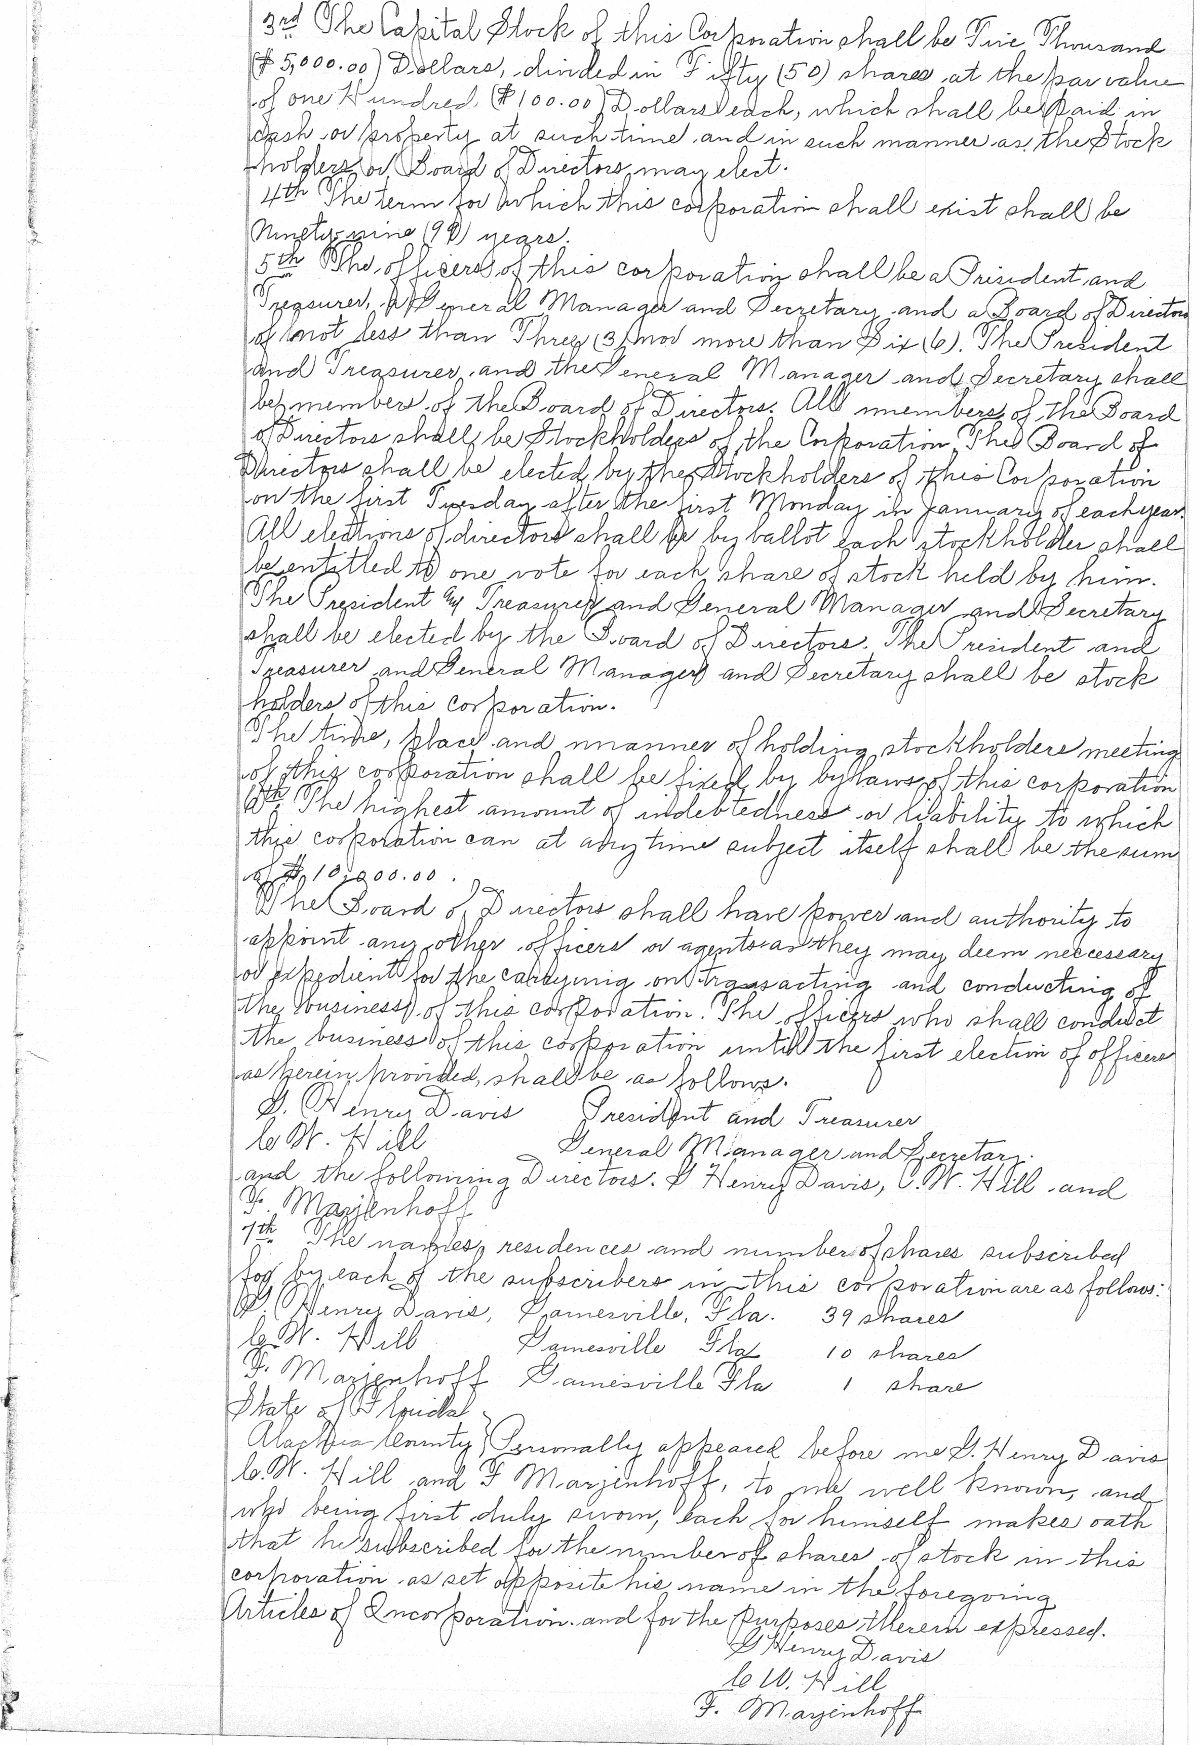 3rd The Capital Stock of this Corporation shall be Five Thousand
($5,000.00) Dollars, divided in Fifty (50) shares at the par value
of one Hundred ($100.00) Dollars each, which shall be paid in
cash or property at such time and in such manner as the Stock
holders or Board of Directors may elect.
4th The term for which this corporation shall exist shall be
Ninety-nine (99) years.
5th The officers of this corporation shall be a President and
Treasurer, A General Manager and Secretary and a Board of Directors
of not less than Three (3) nor more than Six (6). The President
and Treasurer and the General Manager and Secretary shall
be members of the Board of Directors. All members of the Board
of Directors shall be Stockholders of the Corporation. The Board of
Directors shall be elected by the Stockholders of this Corporation
on the first Tuesday after the first Monday in January of each year.
All elections of directors shall be by ballot each stockholder shall
be entitled to one vote for each share of stock held by him.
The President and Treasurer and General Manager and Secretary
shall be elected by the Board of Directors. The President and
Treasurer and General Manager and Secretary shall be stock
holders of this corporation.
The time, place and manner of holding stockholders meeting
of this corporation shall be fixed by by laws of this corporation
6th The highest amount of indebtedness or liability to which
this corporation can at any time subject itself shall be the sum
of $10,000.00.
The Board of Directors shall have power and authority to
appoint any other officers or agents as they may deem neccessary
or expedient for the carrying on transacting and conducting of
the business of this corporation. The officers who shall conduct
the business of this corporation until the first election of officers
as herein provided, shall be as follows.
G. Henry Davis President and Treasurer
C. W. Hill General Manager and Secretary.
and the following Directors. G Henry Davis, C. W. Hill and
F. Marjenhoff
7th The names, residences and number of shares subscribed
for by each of the subscribers in this corporation are as follows:
G. Henry Davis, Gainesville, Fla. 39 shares
C. W. Hill Gainesville Fla 10 shares
F. Marjenhoff Gainesville Fla 1 share
State of Florida
Alachua County } Personally appeared before me G. Henry Davis
C. W. Hill and F Marjenhoff, to me well known, and
who being first duly sworn, each for himself makes oath
that he subscribed for the number of shares of stock in this
corporation as set opposite his name in the foregoing
Articles of Incorporation and for the purposes therein expressed.
G Henry Davis
C W. Hill
F. Marjenhoff